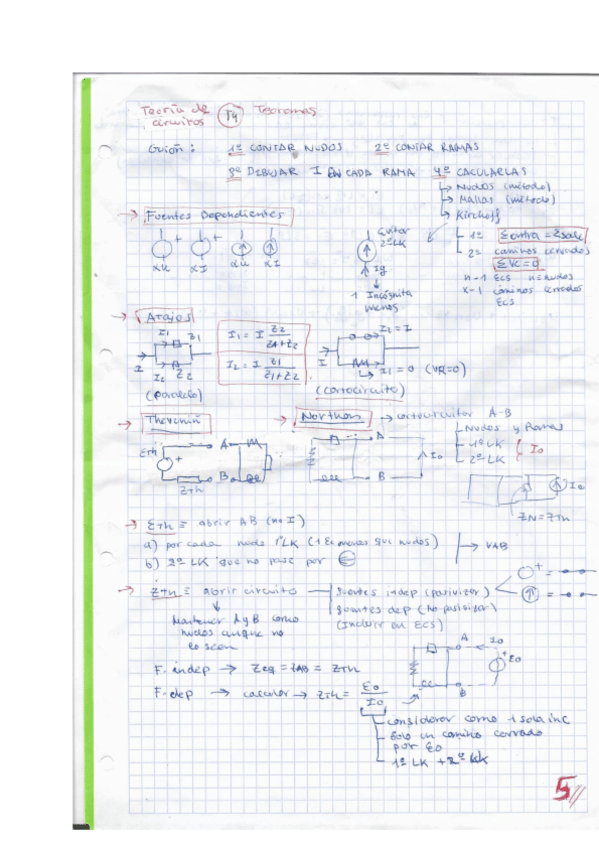 Teoría de circuitos T4 Teoremas
Guión: 1º CONTAR NUDOS 2º CONTAR RAMAS
3º DIBUJAR I EN CADA RAMA 4º CACULARLAS
↳ Nudos (método)
↳ Mallas (método)
↳ Kirchoff
→ Fuentes Dependientes
Quitar 2ºLK
1º Σentra = Σsale
2º caminos cerrados
ΣV=0
n-1 Ecs n≡nudos
caminos cerrados
Ecs
+ +
αu αI αu αI
Ig
1 Incógnita menos
→ Atajos
I1 Z1
I
I2 Z2
(paralelo)
I1 = I Z2/(Z1+Z2)
I2 = I Z1/(Z1+Z2)
I2 = I
I
I1 = 0 (VR=0)
(cortocircuito)
→ Thevenin
→ Northon → cortocircuitar A-B
Nudos y Ramas
1º LK
2º LK
I0
Eth A
B
Zth
A
I0
B
I0
ZN=ZTh
→ ETh ≡ abrir AB (no I)
a) por cada nudo 1ºLK (1 Ec menos que nudos)
b) 2º LK que no pase por
→ VAB
→ ZTh ≡ abrir circuito
fuentes indep (pasivizar)
fuentes dep (no pasivizar)
(Incluir en ECS)
Mantener A y B como
nudos aunque no
lo sean
F. indep → Zeq = ZAB = ZTh
F. dep → calcular → ZTh = E0/I0
A I0
E0
B
considerar como 1 sola inc
Solo un camino cerrado
por E0
1º LK + 2º LK
5